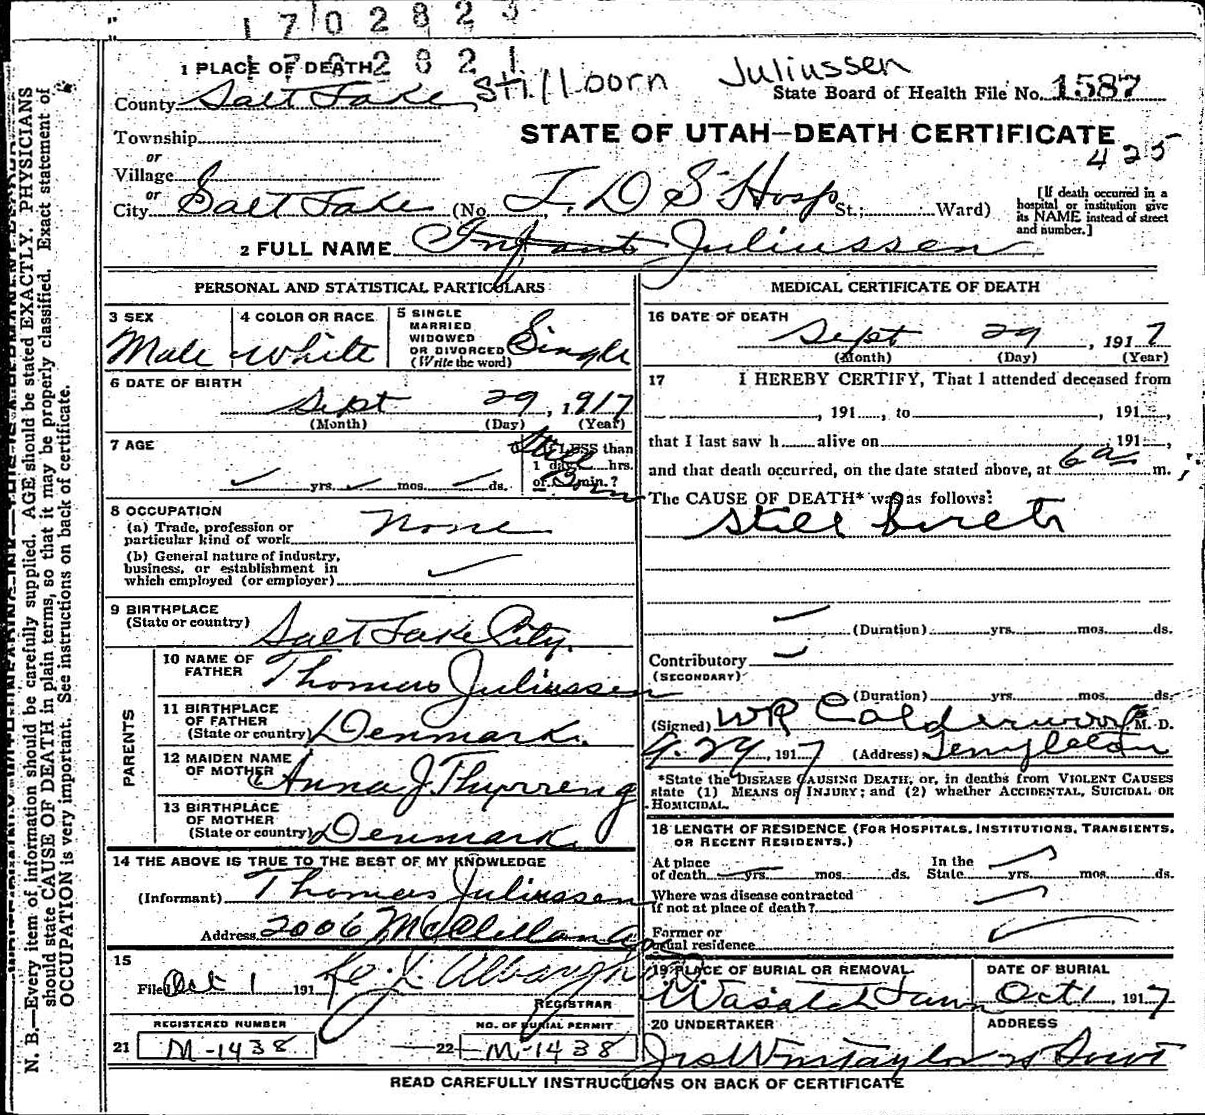 170282
170282
1 PLACE OF DEATH
Stillborn Juliussen
County Salt Lake
State Board of Health File No. 1587
Township
STATE OF UTAH—DEATH CERTIFICATE
or
425
Village
or
City Salt Lake (No. L. D S Hosp St.; Ward)
[If death occurred in a hospital or institution give its NAME instead of street and number.]
2 FULL NAME Infant Juliussen
PERSONAL AND STATISTICAL PARTICULARS
3 SEX
Male
4 COLOR OR RACE
White
5 SINGLE MARRIED WIDOWED OR DIVORCED (Write the word)
Single
6 DATE OF BIRTH
Sept 29, 1917
(Month) (Day) (Year)
7 AGE
yrs. mos. ds.
If LESS than 1 day, hrs. or min.?
Still Born
8 OCCUPATION
(a) Trade, profession or particular kind of work None
(b) General nature of industry, business, or establishment in which employed (or employer)
9 BIRTHPLACE
(State or country) Salt Lake City.
PARENTS
10 NAME OF FATHER Thomas Juliussen
11 BIRTHPLACE OF FATHER (State or country) Denmark.
12 MAIDEN NAME OF MOTHER Anna J. Thyrreng
13 BIRTHPLACE OF MOTHER (State or country) Denmark
14 THE ABOVE IS TRUE TO THE BEST OF MY KNOWLEDGE
(Informant) Thomas Juliussen
Address 2006 McClelland
15
Filed Oct 1 191
REGISTRAR
REGISTERED NUMBER
21 M-1438
NO. OF BURIAL PERMIT
22 M-1438
MEDICAL CERTIFICATE OF DEATH
16 DATE OF DEATH
Sept 29, 1917
(Month) (Day) (Year)
17 I HEREBY CERTIFY, That I attended deceased from
, 191 , to , 191 ,
that I last saw h alive on , 191 ,
and that death occurred, on the date stated above, at 6 a m.
The CAUSE OF DEATH* was as follows:
Still birth
(Duration) yrs. mos. ds.
Contributory
(SECONDARY)
(Duration) yrs. mos. ds.
(Signed) WR Calderwood M. D.
9.29, 1917 (Address) Templeton
*State the DISEASE CAUSING DEATH, or, in deaths from VIOLENT CAUSES
state (1) MEANS OF INJURY; and (2) whether ACCIDENTAL, SUICIDAL OR
HOMICIDAL.
18 LENGTH OF RESIDENCE (FOR HOSPITALS, INSTITUTIONS, TRANSIENTS,
OR RECENT RESIDENTS.)
At place of death yrs. mos. ds. In the State yrs. mos. ds.
Where was disease contracted if not at place of death?
Former or usual residence
19 PLACE OF BURIAL OR REMOVAL
Wasatch Lawn
DATE OF BURIAL
Oct 1, 1917
20 UNDERTAKER
ADDRESS
READ CAREFULLY INSTRUCTIONS ON BACK OF CERTIFICATE
N. B.—Every item of information should be carefully supplied. AGE should be stated EXACTLY. PHYSICIANS
should state CAUSE OF DEATH in plain terms, so that it may be properly classified. Exact statement of
OCCUPATION is very important. See instructions on back of certificate.